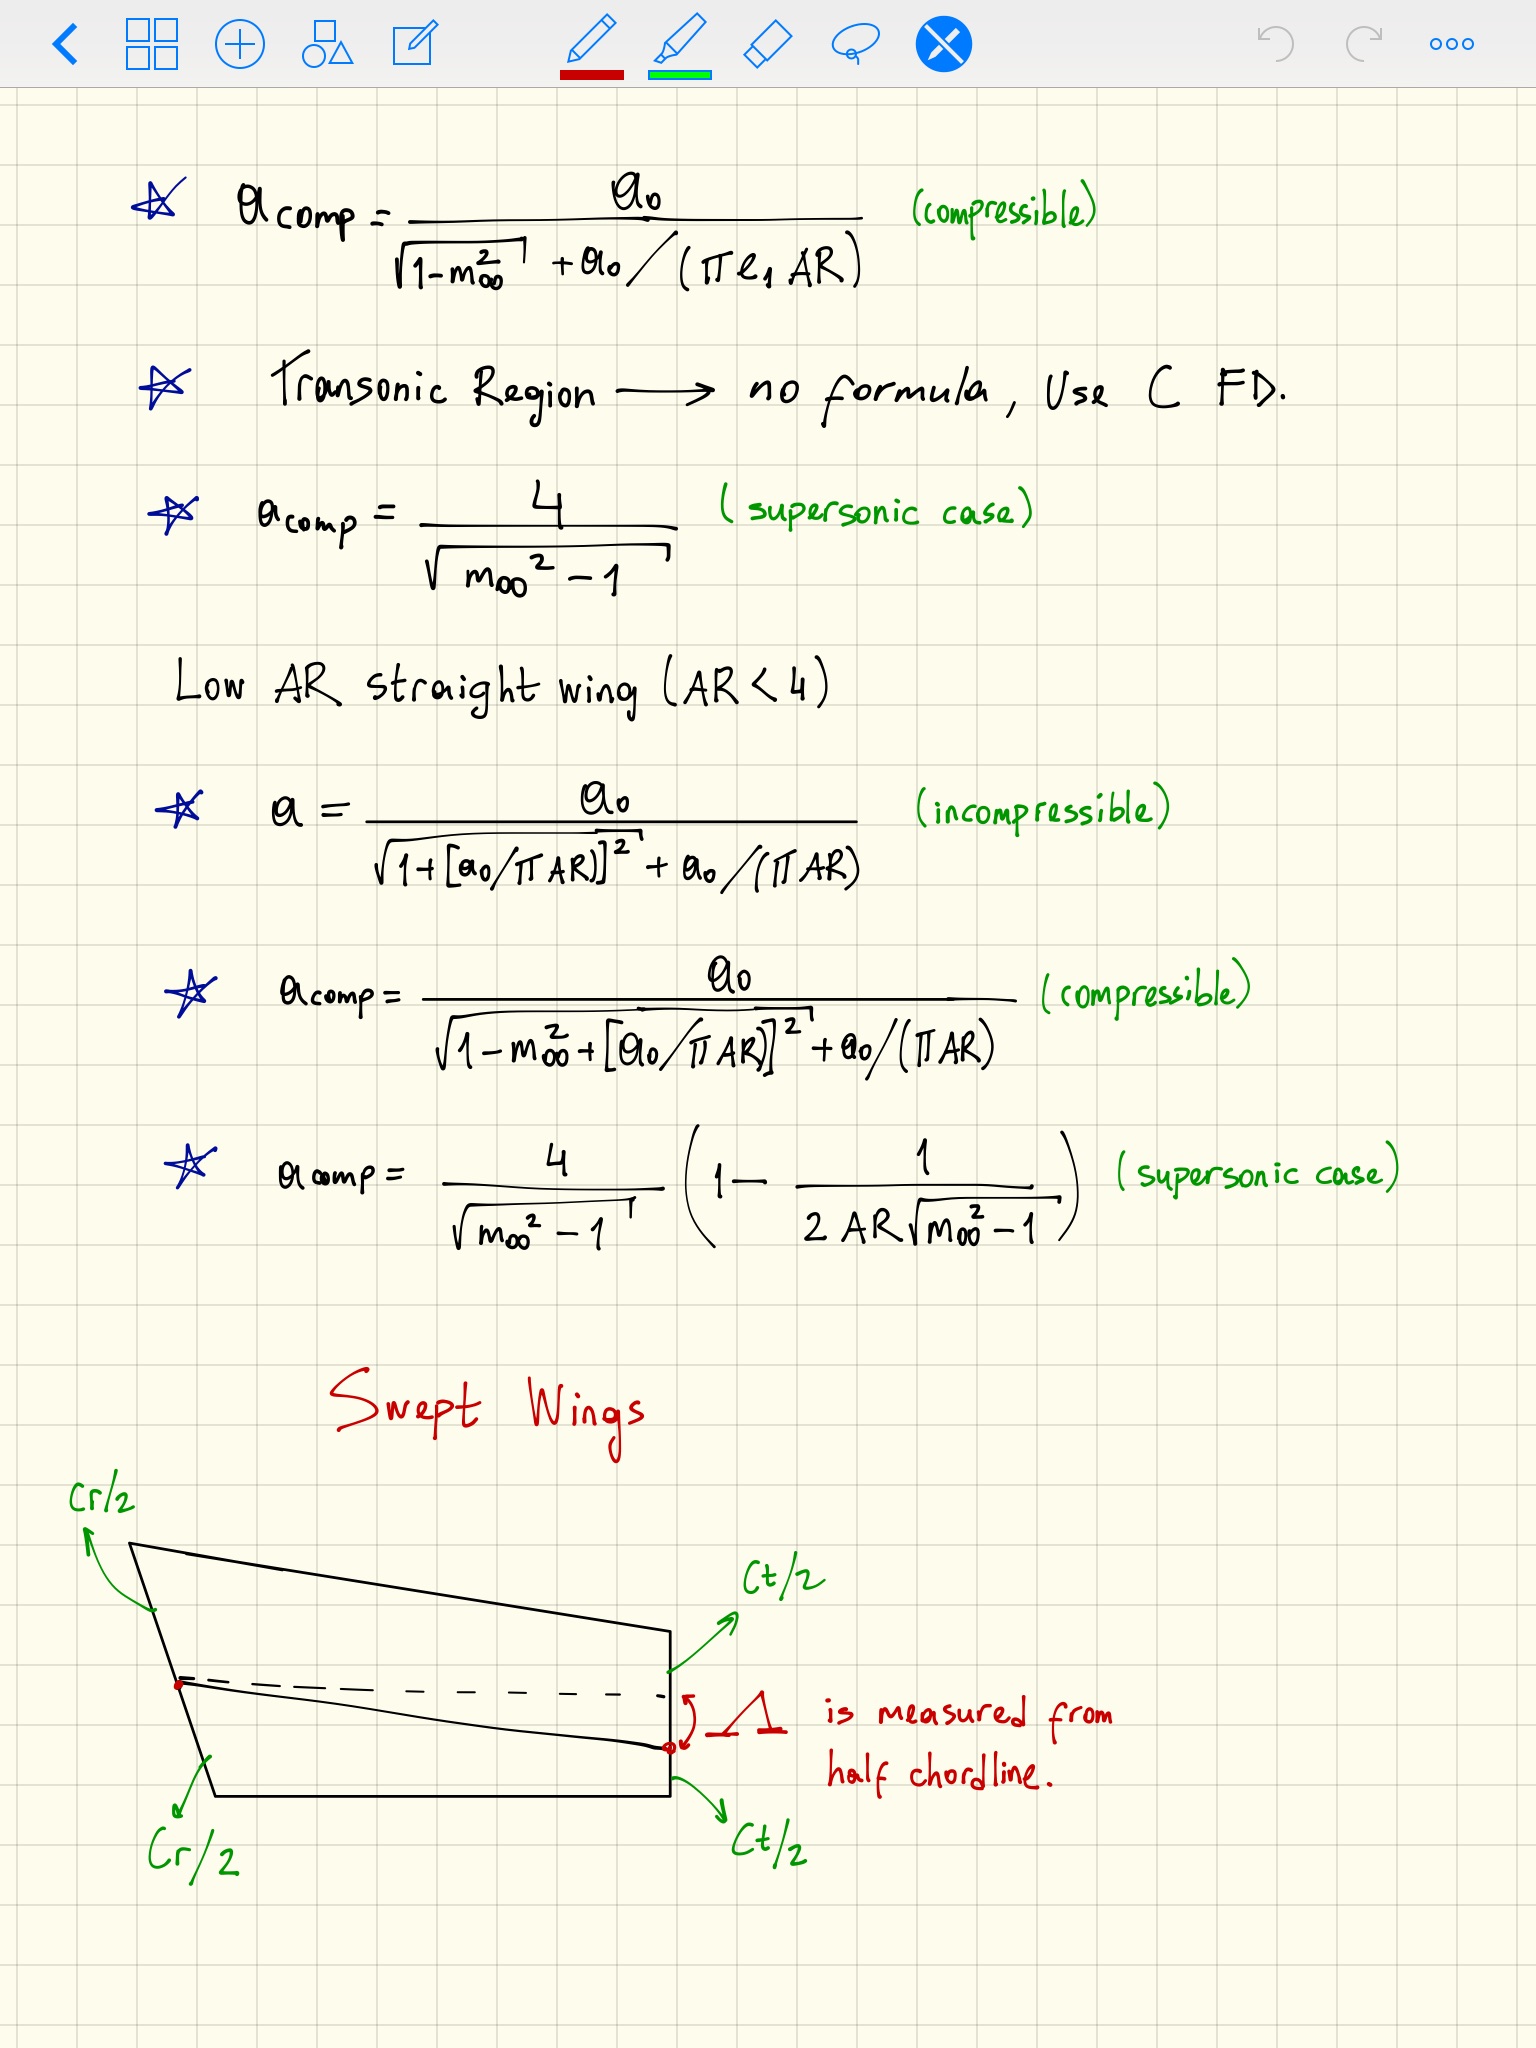 ☆ a_comp = a₀ / (√(1-m∞²) + a₀/(π e₁ AR)) (compressible)
☆ Transonic Region ⟶ no formula, Use C FD.
☆ a_comp = 4 / √(m∞² - 1) (supersonic case)
Low AR straight wing (AR < 4)
☆ a = a₀ / (√(1+[a₀/πAR)]²) + a₀/(πAR)) (incompressible)
☆ a_comp = a₀ / (√(1-m∞²+[a₀/πAR)]²) + a₀/(πAR)) (compressible)
☆ a_comp = 4 / √(m∞² - 1) (1 - 1 / (2 AR √(m∞² - 1))) (supersonic case)
Swept Wings
Cr/2
Ct/2
Λ is measured from
half chordline.
Cr/2
Ct/2